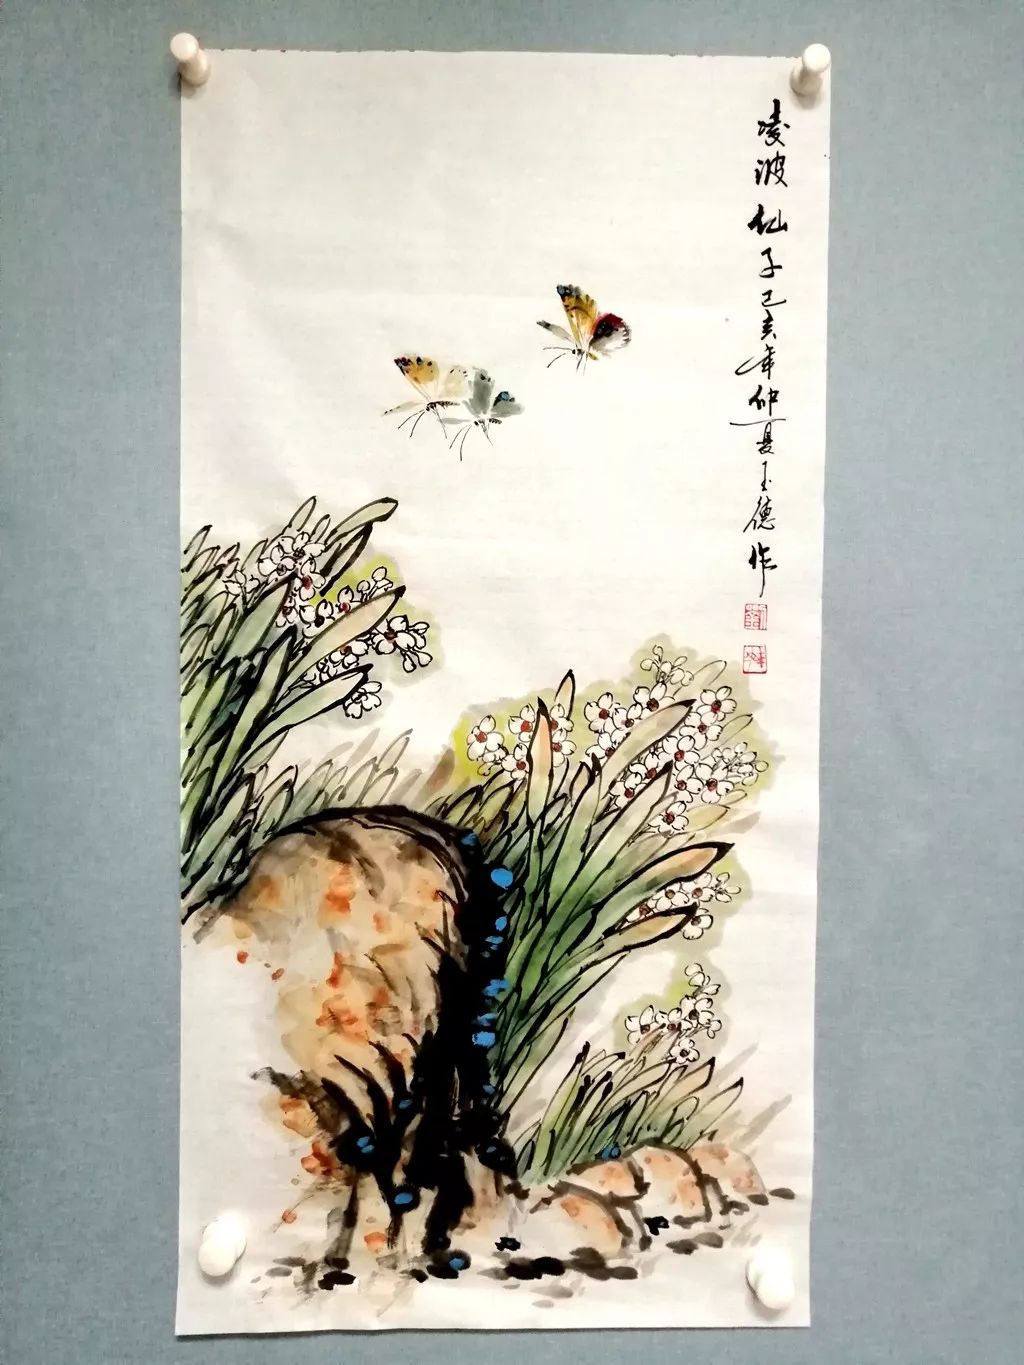 凌波仙子己亥年仲夏玉德作